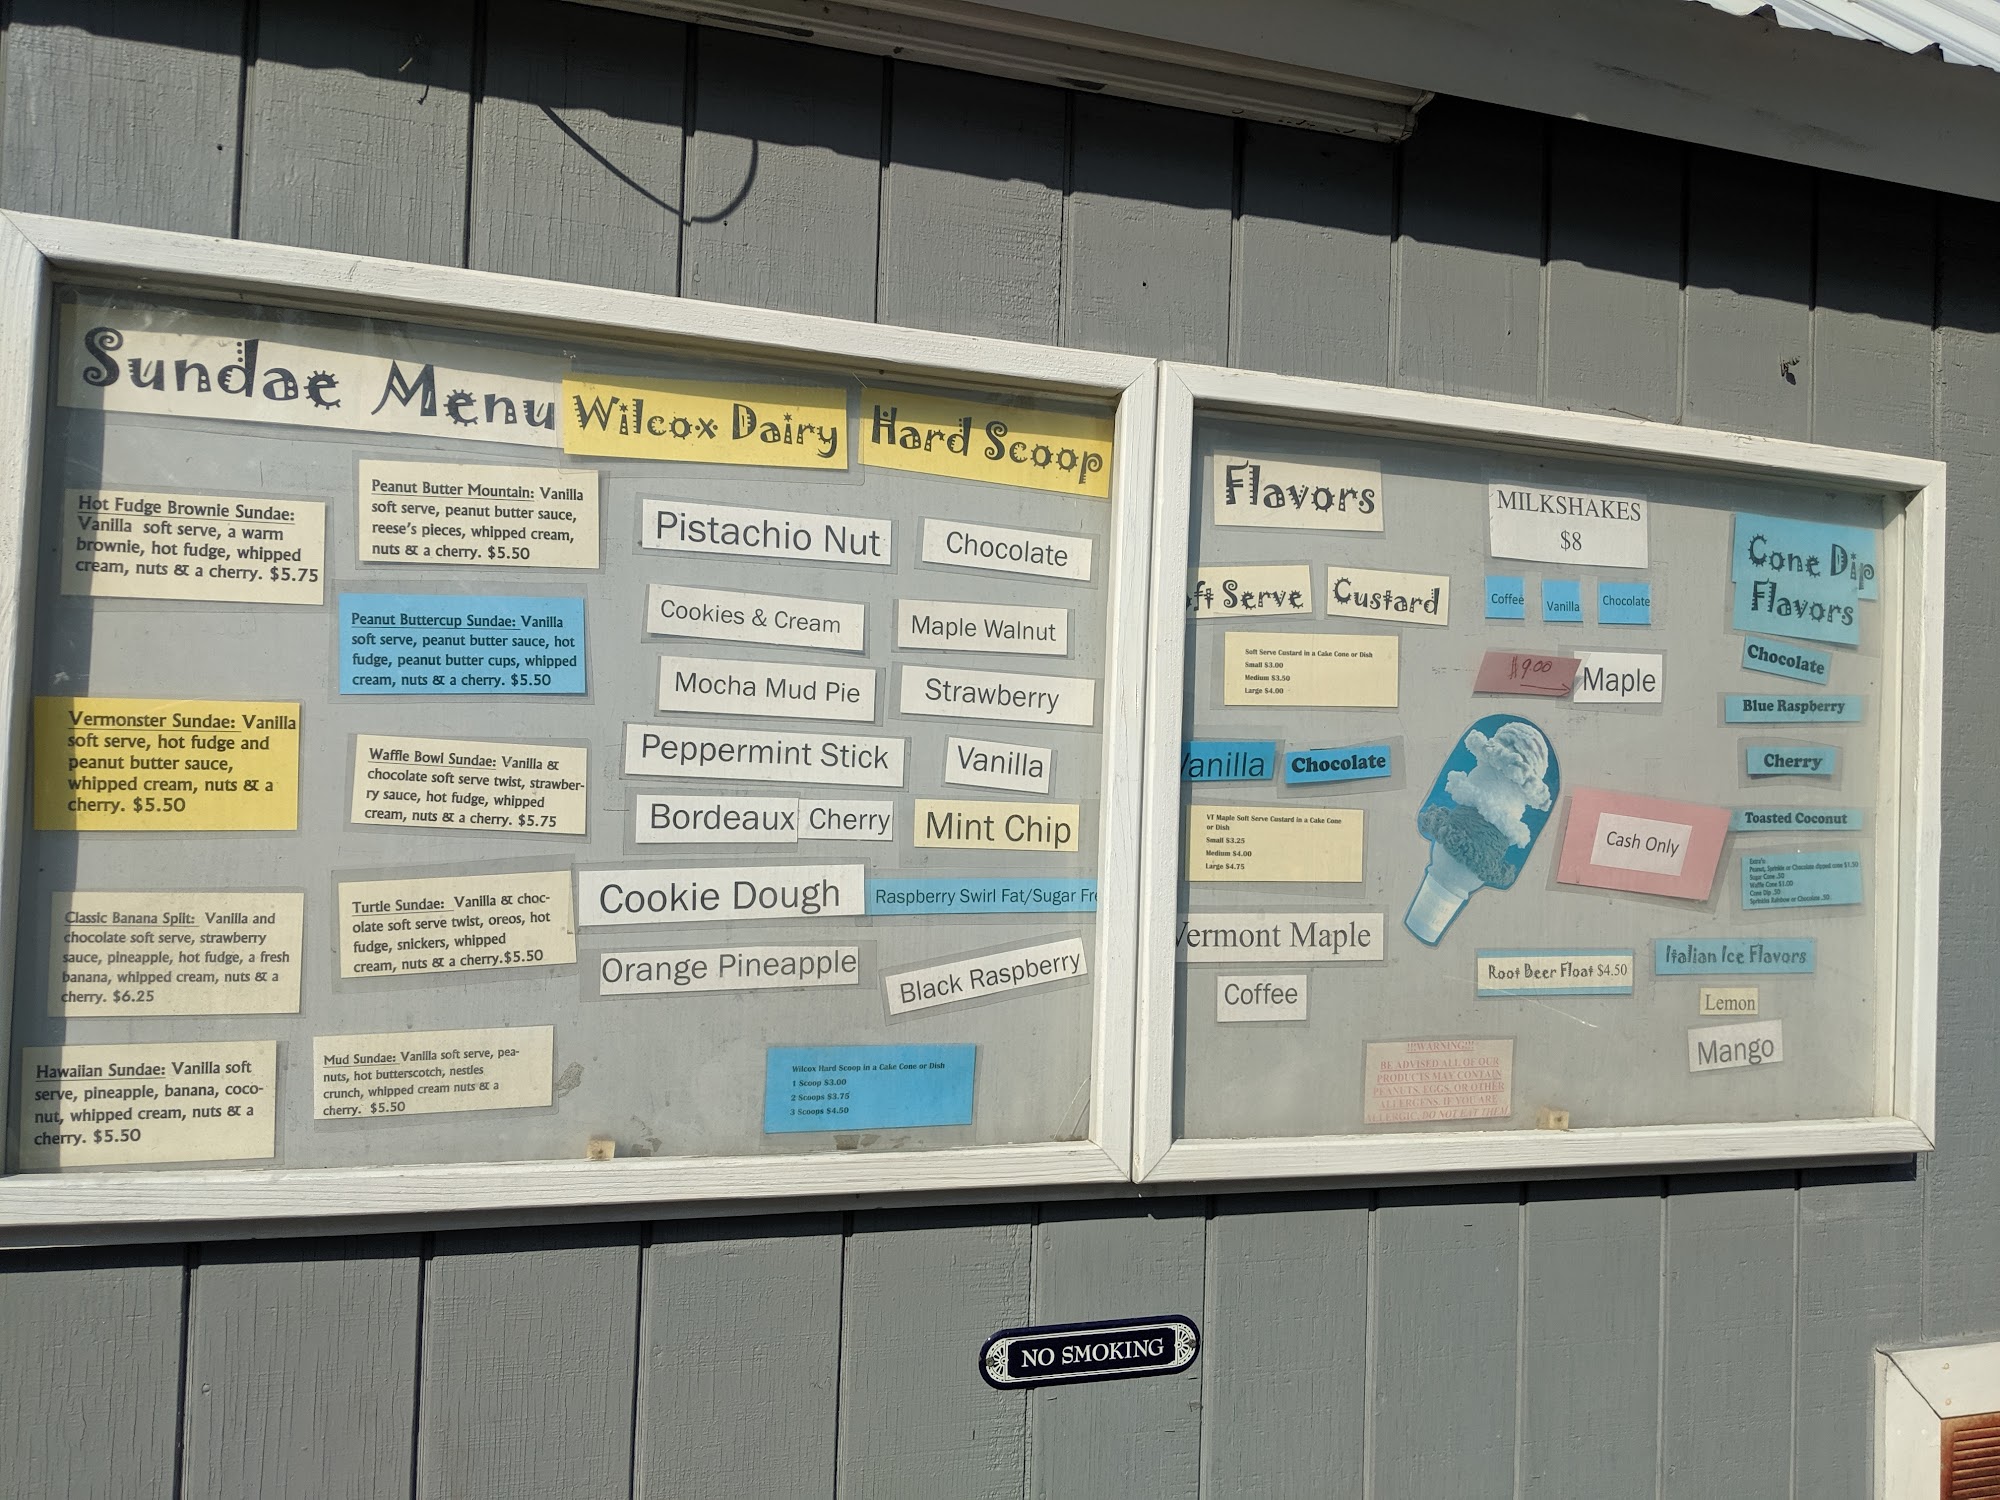 Sundae Menu
Hot Fudge Brownie Sundae:
Vanilla soft serve, a warm
brownie, hot fudge, whipped
cream, nuts & a cherry. $5.75
Vermonster Sundae: Vanilla
soft serve, hot fudge and
peanut butter sauce,
whipped cream, nuts & a
cherry. $5.50
Classic Banana Split: Vanilla and
chocolate soft serve, strawberry
sauce, pineapple, hot fudge, a fresh
banana, whipped cream, nuts & a
cherry. $6.25
Hawaiian Sundae: Vanilla soft
serve, pineapple, banana, coco-
nut, whipped cream, nuts & a
cherry. $5.50
Peanut Butter Mountain: Vanilla
soft serve, peanut butter sauce,
reese's pieces, whipped cream,
nuts & a cherry. $5.50
Peanut Buttercup Sundae: Vanilla
soft serve, peanut butter sauce, hot
fudge, peanut butter cups, whipped
cream, nuts & a cherry. $5.50
Waffle Bowl Sundae: Vanilla &
chocolate soft serve twist, strawber-
ry sauce, hot fudge, whipped
cream, nuts & a cherry. $5.75
Turtle Sundae: Vanilla & choc-
olate soft serve twist, oreos, hot
fudge, snickers, whipped
cream, nuts & a cherry.$5.50
Mud Sundae: Vanilla soft serve, pea-
nuts, hot butterscotch, nestles
crunch, whipped cream nuts & a
cherry. $5.50
Wilcox Dairy Hard Scoop
Pistachio Nut
Cookies & Cream
Mocha Mud Pie
Peppermint Stick
Bordeaux Cherry
Cookie Dough
Orange Pineapple
Chocolate
Maple Walnut
Strawberry
Vanilla
Mint Chip
Raspberry Swirl Fat/Sugar Fre
Black Raspberry
Wilcox Hard Scoop in a Cake Cone or Dish
1 Scoop $3.00
2 Scoops $3.75
3 Scoops $4.50
Flavors
ft Serve Custard
Soft Serve Custard in a Cake Cone or Dish
Small $3.00
Medium $3.50
Large $4.00
Vanilla Chocolate
VT Maple Soft Serve Custard in a Cake Cone
or Dish
Small $3.25
Medium $4.00
Large $4.75
Vermont Maple
Coffee
MILKSHAKES
$8
Coffee Vanilla Chocolate
$9.00 Maple
Cash Only
Root Beer Float $4.50
!!!WARNING!!!
BE ADVISED ALL OF OUR
PRODUCTS MAY CONTAIN
PEANUTS, EGGS, OR OTHER
ALLERGENS. IF YOU ARE
ALLERGIC, DO NOT EAT THEM
Cone Dip
Flavors
Chocolate
Blue Raspberry
Cherry
Toasted Coconut
Extra's
Peanut, Sprinkle or Chocolate dipped cone $1.50
Sugar Cone .50
Waffle Cone $1.00
Cone Dip .50
Sprinkles Rainbow or Chocolate .50
Italian Ice Flavors
Lemon
Mango
NO SMOKING